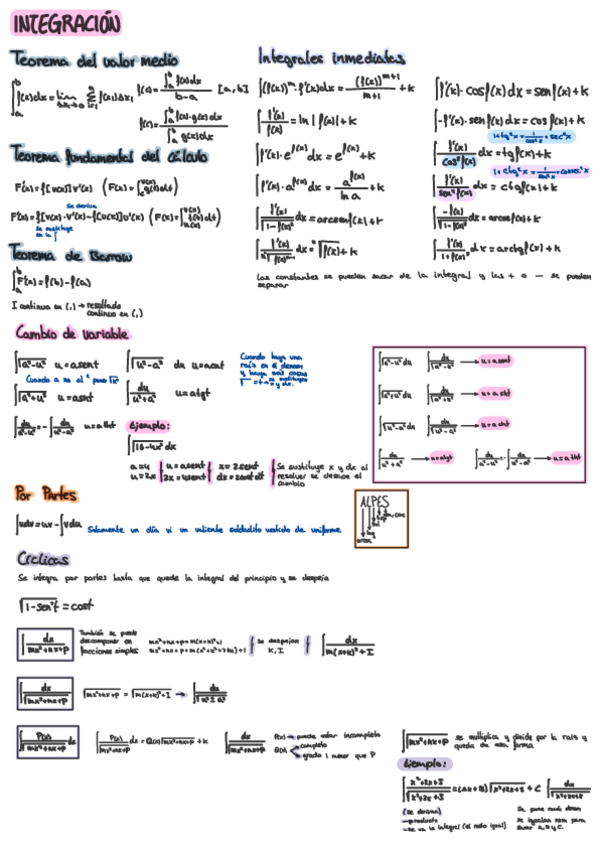 INTEGRACIÓN
Teorema del valor medio
∫_a^b f(x)dx = lim Σ f(xi)Δxi
f(c) = ∫_a^b f(x)dx / b-a [a,b]
f(c) = ∫_a^b f(x)·g(x)dx / ∫_a^b g(x)dx
Teorema fundamental del cálculo
Se deriva
Se sustituye
en la f
Teorema de Barrow
∫_a^b F'(x) = f(b) - f(a)
I continua en (,) → resultado
continuo en (,)
Integrales inmediatas
∫(f(x))^m · f'(x)dx = (f(x))^(m+1) / m+1 + K
∫ f'(x)/f(x) = ln|f(x)| + K
∫f'(x)·e^f(x) dx = e^f(x) + K
∫f'(x)·a^f(x) dx = a^f(x) / ln a + K
∫ f'(x)/√(1-f(x)²) dx = arcsen f(x) + K
∫f'(x)·cos f(x) dx = sen f(x) + K
∫-f'(x)·sen f(x) dx = cos f(x) + K
1+tg²x = 1/cos²x = sec²x
∫ f'(x)/cos²f(x) dx = tg f(x) + K
∫ f'(x)/sen²f(x) dx = ctg f(x) + K
∫ -f'(x)/√(1-f(x)²) dx = arcos f(x) + K
∫ f'(x)/1+f(x)² dx = arctg f(x) + K
Las constantes se pueden sacar de la integral y las + o — se pueden
separar
Cambio de variable
∫√(a²-u²) u=a sent
∫√(a²+u²) u=a sht
∫√(u²-a²) du u=a cht
∫ du/u²+a² u=a tgt
∫ du/a²-u² = -∫ du/u²-a² u=a tht
Cuando haya una
raíz en el denom
y haya más cosas
Ejemplo:
∫√(16-4x²) dx
a=4
u=2x
u=a sent
2x=4sent
x=2sent
dx=2cost dt
Se sustituye x y dx al
resolver se deshace el
cambio
∫√(a²-u²) du ∫ du/√(a²-u²) → u=a sent
∫√(a²+u²) du ∫ du/√(a²+u²) → u=a sht
∫√(u²-a²) du ∫ du/√(u²-a²) → u=a cht
∫ du/u²+a² → u=a tgt
∫ du/a²-u² = -∫ du/u²-a² → u=a tht
Por Partes
∫udv = uv - ∫vdu
Solamente un día vi un valiente soldadito vestido de uniforme
ALPES
Cíclicas
Se integra por partes hasta que quede la integral del principio y se despeja
√(1-sen²t) = cost
∫ dx/mx²+nx+p
También se puede
descomponer en
fracciones simples
mx²+nx+p = m(x+k)²+I
Se despejan
K, I
∫ dx/m(x+k)²+I
∫ dx/√(mx²+nx+p)
√(mx²+nx+p) = √(m(x+k)²+I) → ∫ dx/√(u²±a²)
∫ P(x)/√(mx²+nx+p) dx
∫ P(x)/√(mx²+nx+p) dx = Q(x)√(mx²+nx+p) + K ∫ dx/√(mx²+nx+p)
P(x) → puede estar incompleto
Q(x) completo
grado 1 menor que P
∫√(mx²+nx+p) se multiplica y divide por la raíz y
queda de esa forma
Ejemplo:
∫ x²+2x+5/√(x²+2x+5) = (Ax+B)√(x²+2x+5) + C ∫ dx/√(x²+2x+5)
(se deriva)
—producto
—se va la integral (el resto igual)